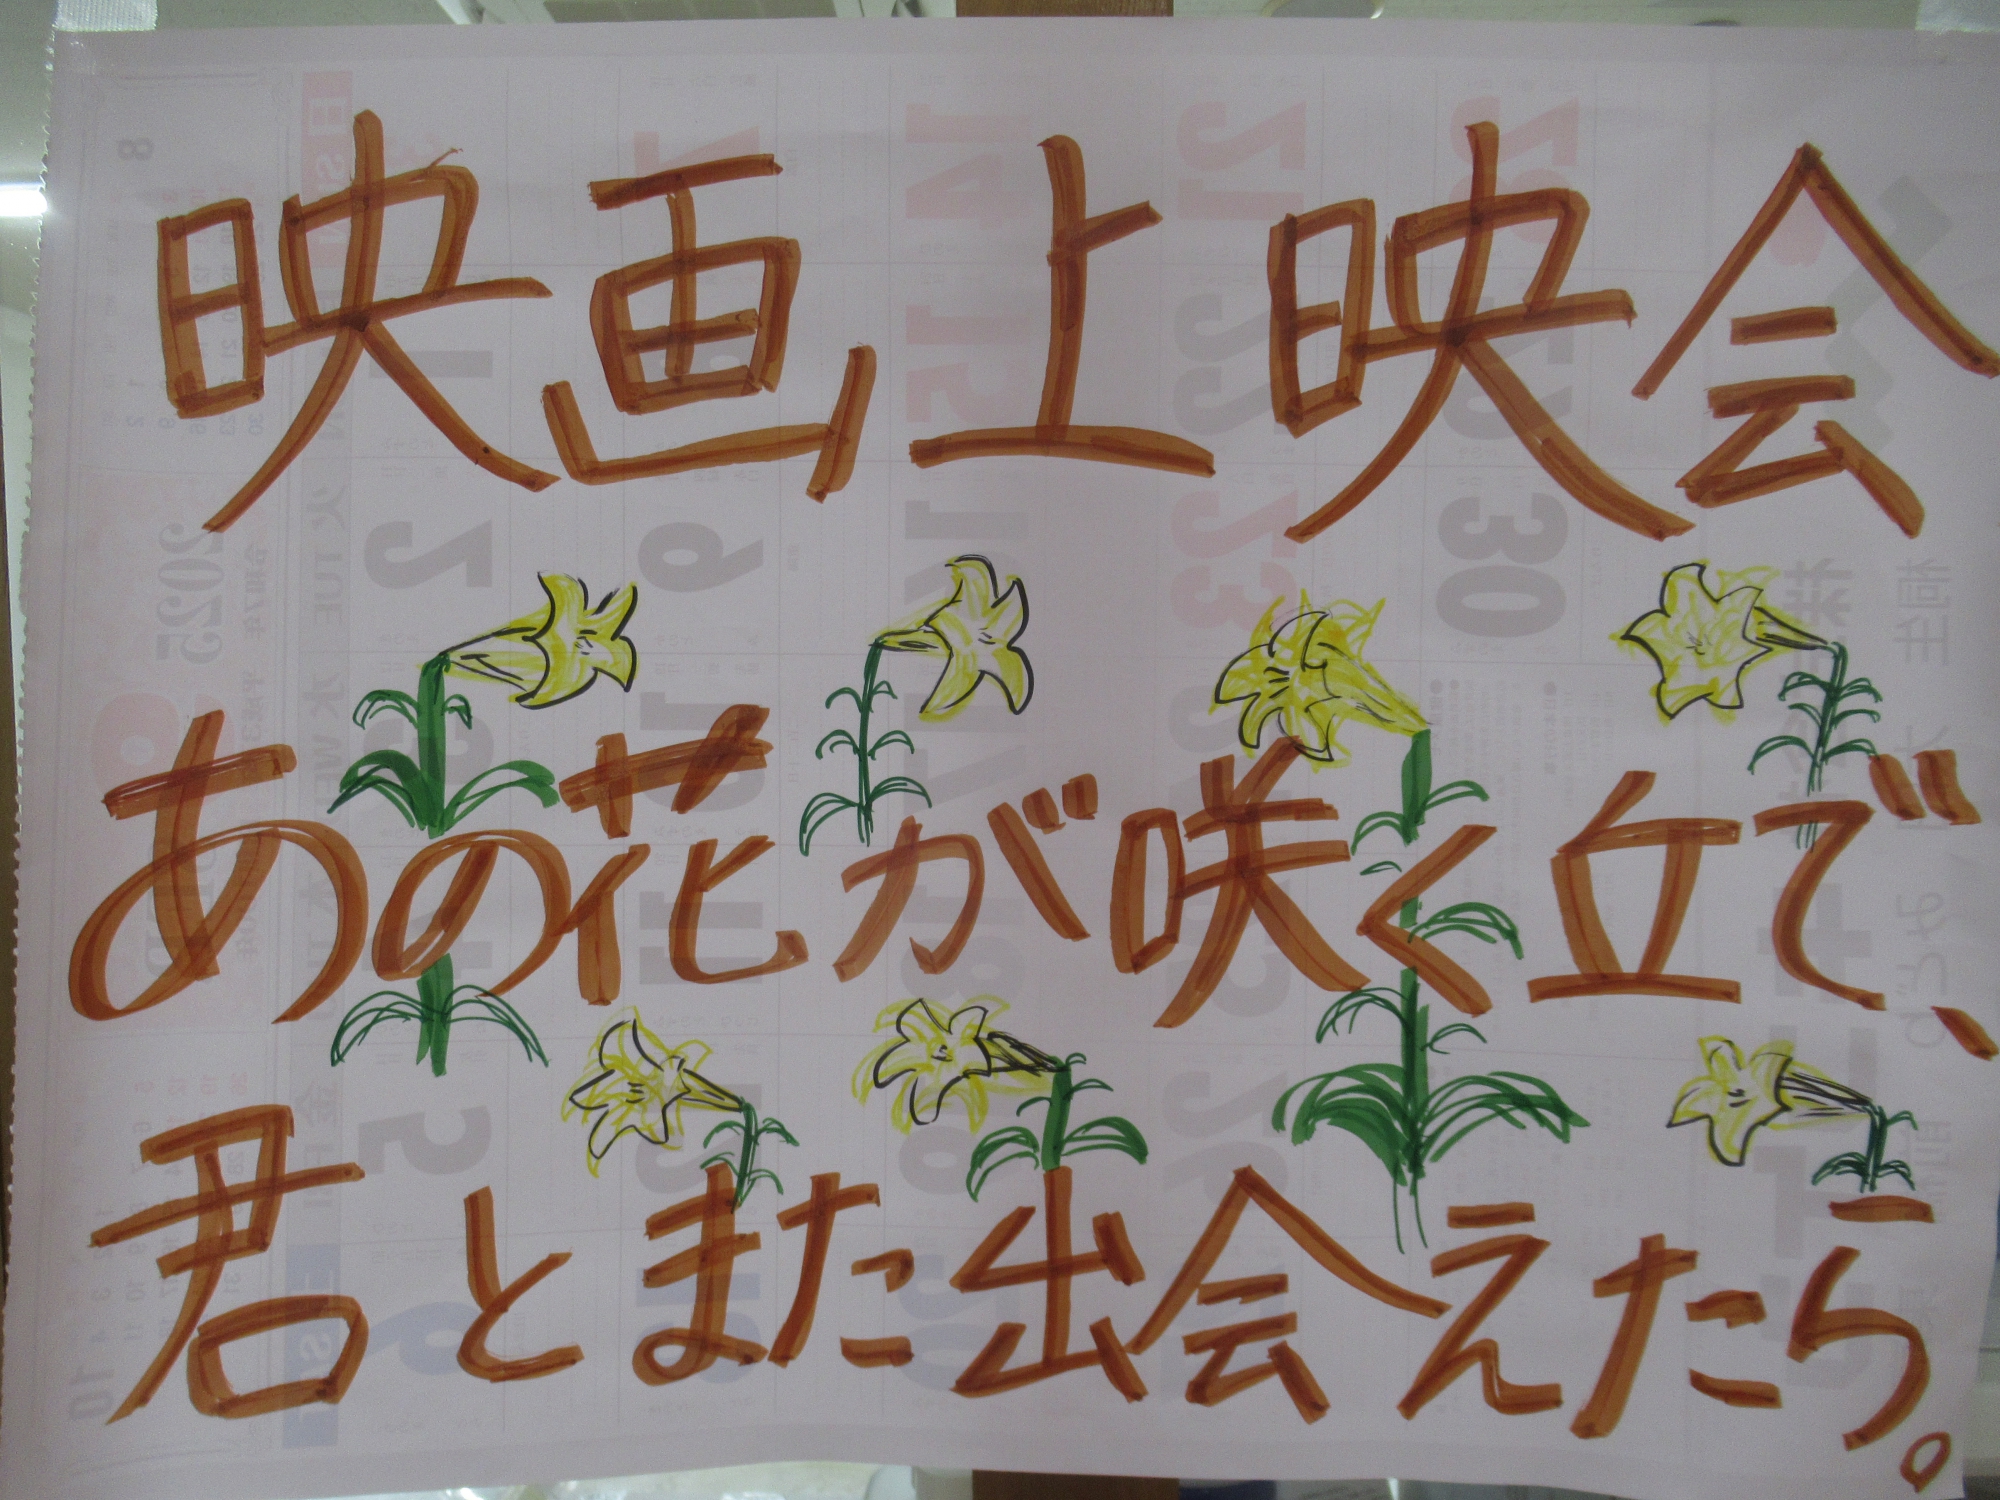 映画上映会
あの花が咲く立で、
君とまた出会えたら。